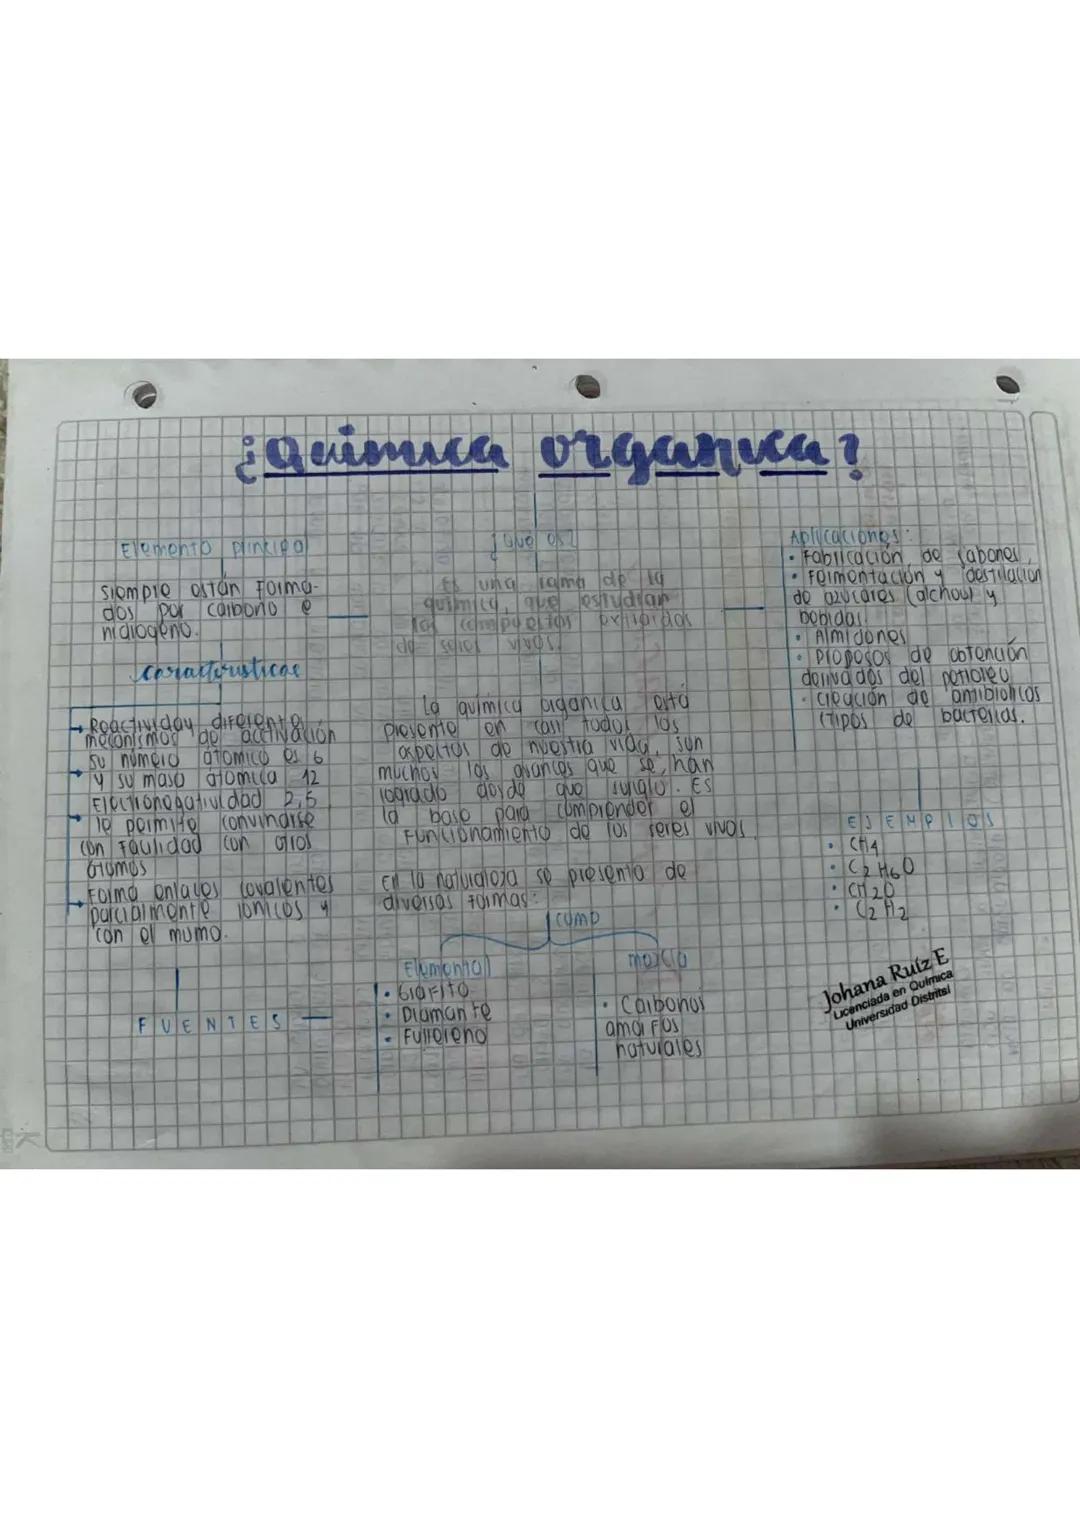 ¿Quimica organica?
Elemento principal
siempre están forma-
dos por carbono e
hidrogeno.
Caracteristicas
Reactividad diferente,
mecanismos de activación
su número átomico es 6
y su masa átomica 12
Electronegatividad 2,5
le permite
con facilidad con otros
átomos
Forma enlaces covalentes
parcialmente ionicos y
con el mismo.
FUENTES
¿Qué es?
Es una rama de la
química, que estudian
los compuestos
de seres vivos.
La química organica está
presente en casi todos los
aspectos de nuestra vida, son
muchos los avances que se han
logrado desde que surgio. Es
la base para comprender el
funcionamiento de los seres vivos.
En la naturaleza se presenta de
diversas formas:
como
Elemental
• Grafito
• Diamante
• Fullereno
mezcla
• Carbonos
amorfos
naturales
Aplicaciones:
• Fabricación de jabones,
• Fermentación y destilación
de azucares (alchool y
bebidas.
• Almidones
• Procesos de obtención
derivados del petroleo
• creación de antibioticos
(Tipos de bacterias.
EJEMPLOS
• CH4
• C2H6O
• CH2O
• C2H2
Johana Ruíz E
Licenciada en Química
Universidad Distrital